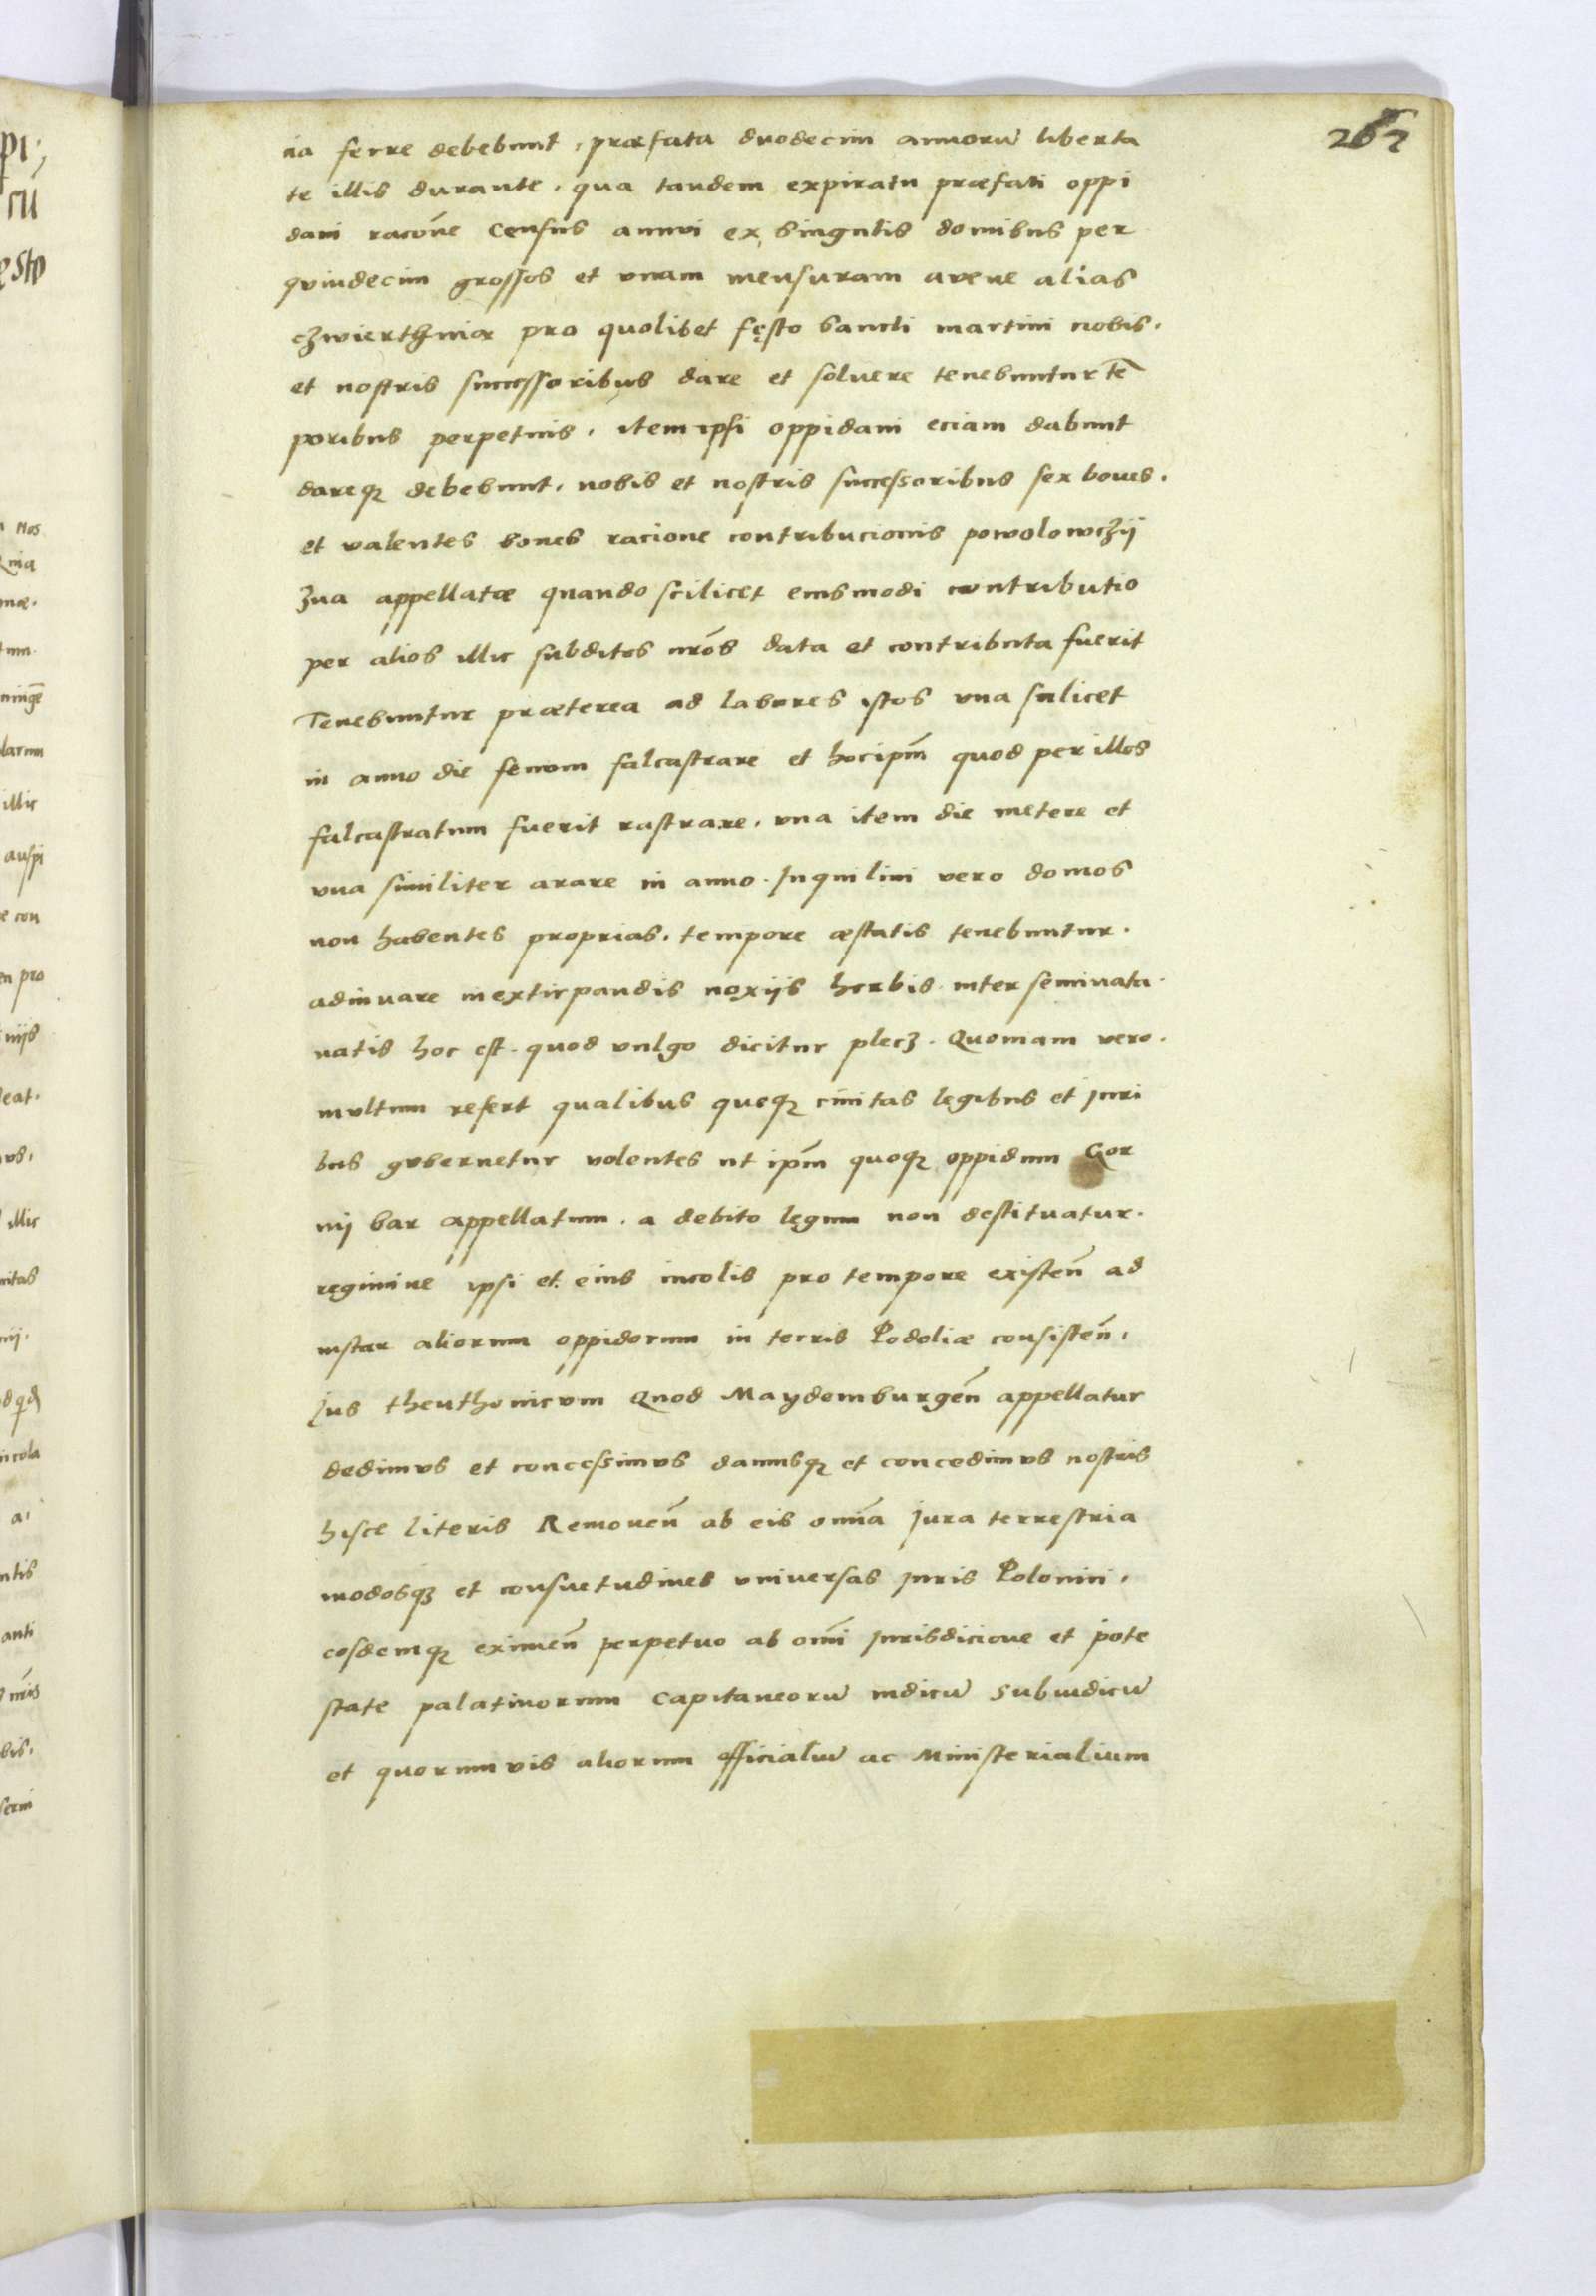 262
na ferre debebunt, præfata duodecim annorũ liberta
te illis durante. qua tandem expirata præfati oppi
dani racōne Census annui ex singulis domibus per
quindecim grossos et vnam mensuram avene alias
czwierthniæ pro quolibet fęsto sancti martini nobis.
et nostris successoribus dare et soluere tenebuntur tē
poribus perpetuis. item ipsi oppidani eciam dabunt
dareqȝ debebunt. nobis et nostris successoribus sex boues.
et valentes boues racione contribucionis powolowczÿ
zna appellatæ quando scilicet eiusmodi contributio
per alios illic subditos nrōs data et contributa fuerit
Tenebuntur præterea ad labores istos vna scilicet
in anno die fenum falcastrare et hoc ipm̄ quod per illos
falcastratum fuerit rastrare. vna item die metere et
vna similiter arare in anno. Inquilini vero domos
non habentes proprias. tempore æstatis tenebuntur.
adiuuare in extirpandis noxÿs herbis inter seminata.
natis hoc est. quod vulgo dicitur plecz. Quoniam vero.
multum refert qualibus queqȝ ciuitas legibus et juri
bus gubernetur volentes ut ipm̄ quoqȝ oppidum Gor
nÿ bar appellatum. a debito legum non destituatur.
regimine ipsi et eius incolis pro tempore existen̄ ad
instar aliorum oppidorum in terris Podoliæ consisten̄.
Jus theuthonicum Quod Maydemburgen̄ appellatur
dedimus et concessimus damusqȝ et concedimus nostris
hisce literis Remouen̄ ab eis omīa jura terrestria
modosqȝ et consuetudines vniversas juris Polonici.
eosdemqȝ eximen̄ perpetuo ab omī jurisdicione et pote
state palatinorum Capitaneorũ iudicũ subiudicũ
et quorumvis aliorum officialiũ ac Ministerialium